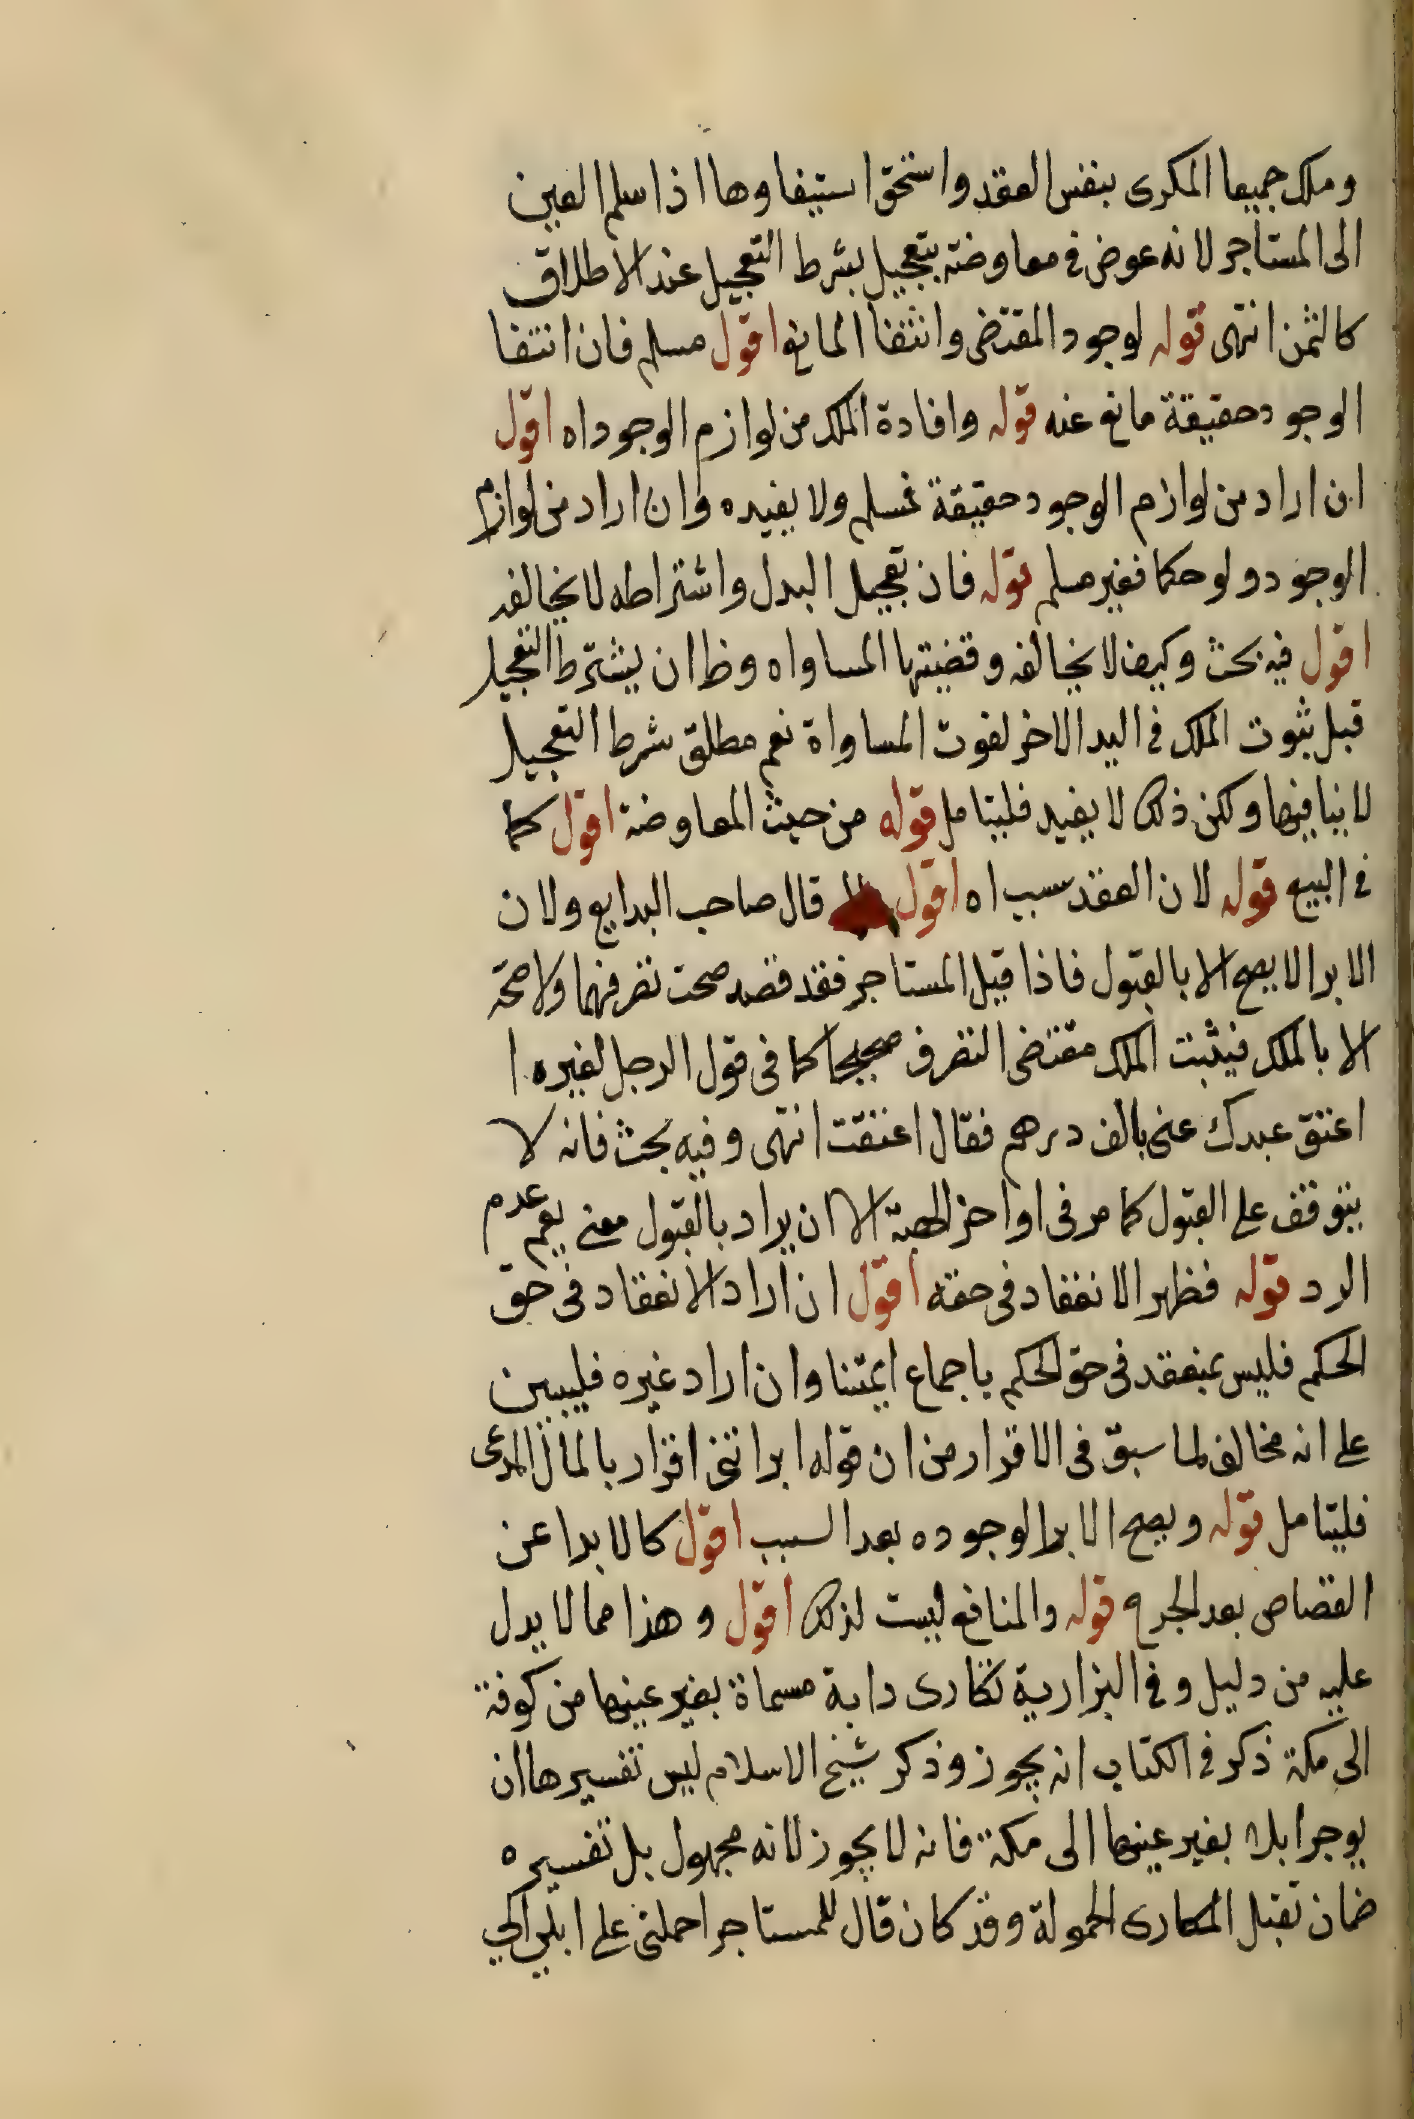 وملك جميعا المكرى بنفس العقد واستحق استيفاوها اذا سلم العين
الى المستاجر لانه عوض فى معاوضة بتعجيل بشرط التعجيل عند الاطلاق
كالثمن انتهى قوله لوجود المقتضى وانتفا المانع اقول مسلم فان انتفا
الوجود حقيقة مانع عنه قوله وافادة الملك من لوازم الوجود اه اقول
ان اراد من لوازم الوجود حقيقة فمسلم ولا يفيده وان اراد من لوازم
الوجود ولو حكما فغير مسلم قوله فان تعجيل البدل واشتراطه لا يخالفه
اقول فيه بحث وكيف لا يخالفه وقضيتها المساواه وظ ان يشترط التعجيل
قبل ثبوت الملك فى اليد الاخر لفوت المساواة نعم مطلق شرط التعجيل
لا ينافيها ولكن ذلك لا يفيد فليتامل قوله من حيث المعاوضة اقول كما
فى البيع قوله لان العقد سبب اه اقول قال صاحب البدايع ولان
الابرا لا يصح الا بالقبول فاذا قبل المستاجر فقد قصد صحت تصرفهما ولا صحة
الا بالملك فيثبت الملك مقتضى التصرف صحيحا كما فى قول الرجل لغيره ا
اعتق عبدك عنى بالف درهم فقال اعتقت انتهى وفيه بحث فانه لا
يتوقف على القبول كما مر فى اواخر الهبة الا ان يراد بالقبول معنى يعم عدم
الرد قوله فظهر الانعقاد فى حقه اقول ان اراد الانعقاد فى حق
الحكم فليس بمنعقد فى حق الحكم باجماع ايمتنا وان اراد غيره فليبين
على انه مخالف لما سبق فى الاقرار من ان قوله ابراتنى اقرار بالمال المدعى
فليتامل قوله ويصح الابرا لوجوده بعد السبب اقول كالابرا عن
القصاص بعد الجرح قوله والمنافع ليست لذلك اقول وهذا مما لا يدل
عليه من دليل وفى البزازية تكارى دابة مسماة بغير عينها من كوفة
الى مكة ذكر فى الكتاب انه يجوز وذكر شيخ الاسلام ليس تفسيرها ان
يوجر ابلا بغير عينها الى مكة فانه لا يجوز لانه مجهول بل تفسيره
ضمان تقبل المكارى الحمولة وقد كان قال للمستاجر احملنى على ابلى الى